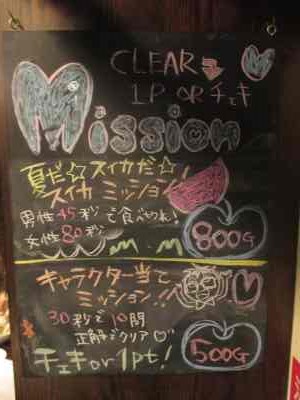 CLEAR
1P OR チェキ
Mission
夏だ☆スイカだ☆
スイカ ミッション!
男性45秒で食べやれ!
女性80秒
800G
キャラクター当て
ミッション!!
30秒で10問
正解でクリア♡
チェキor1pt!
500G